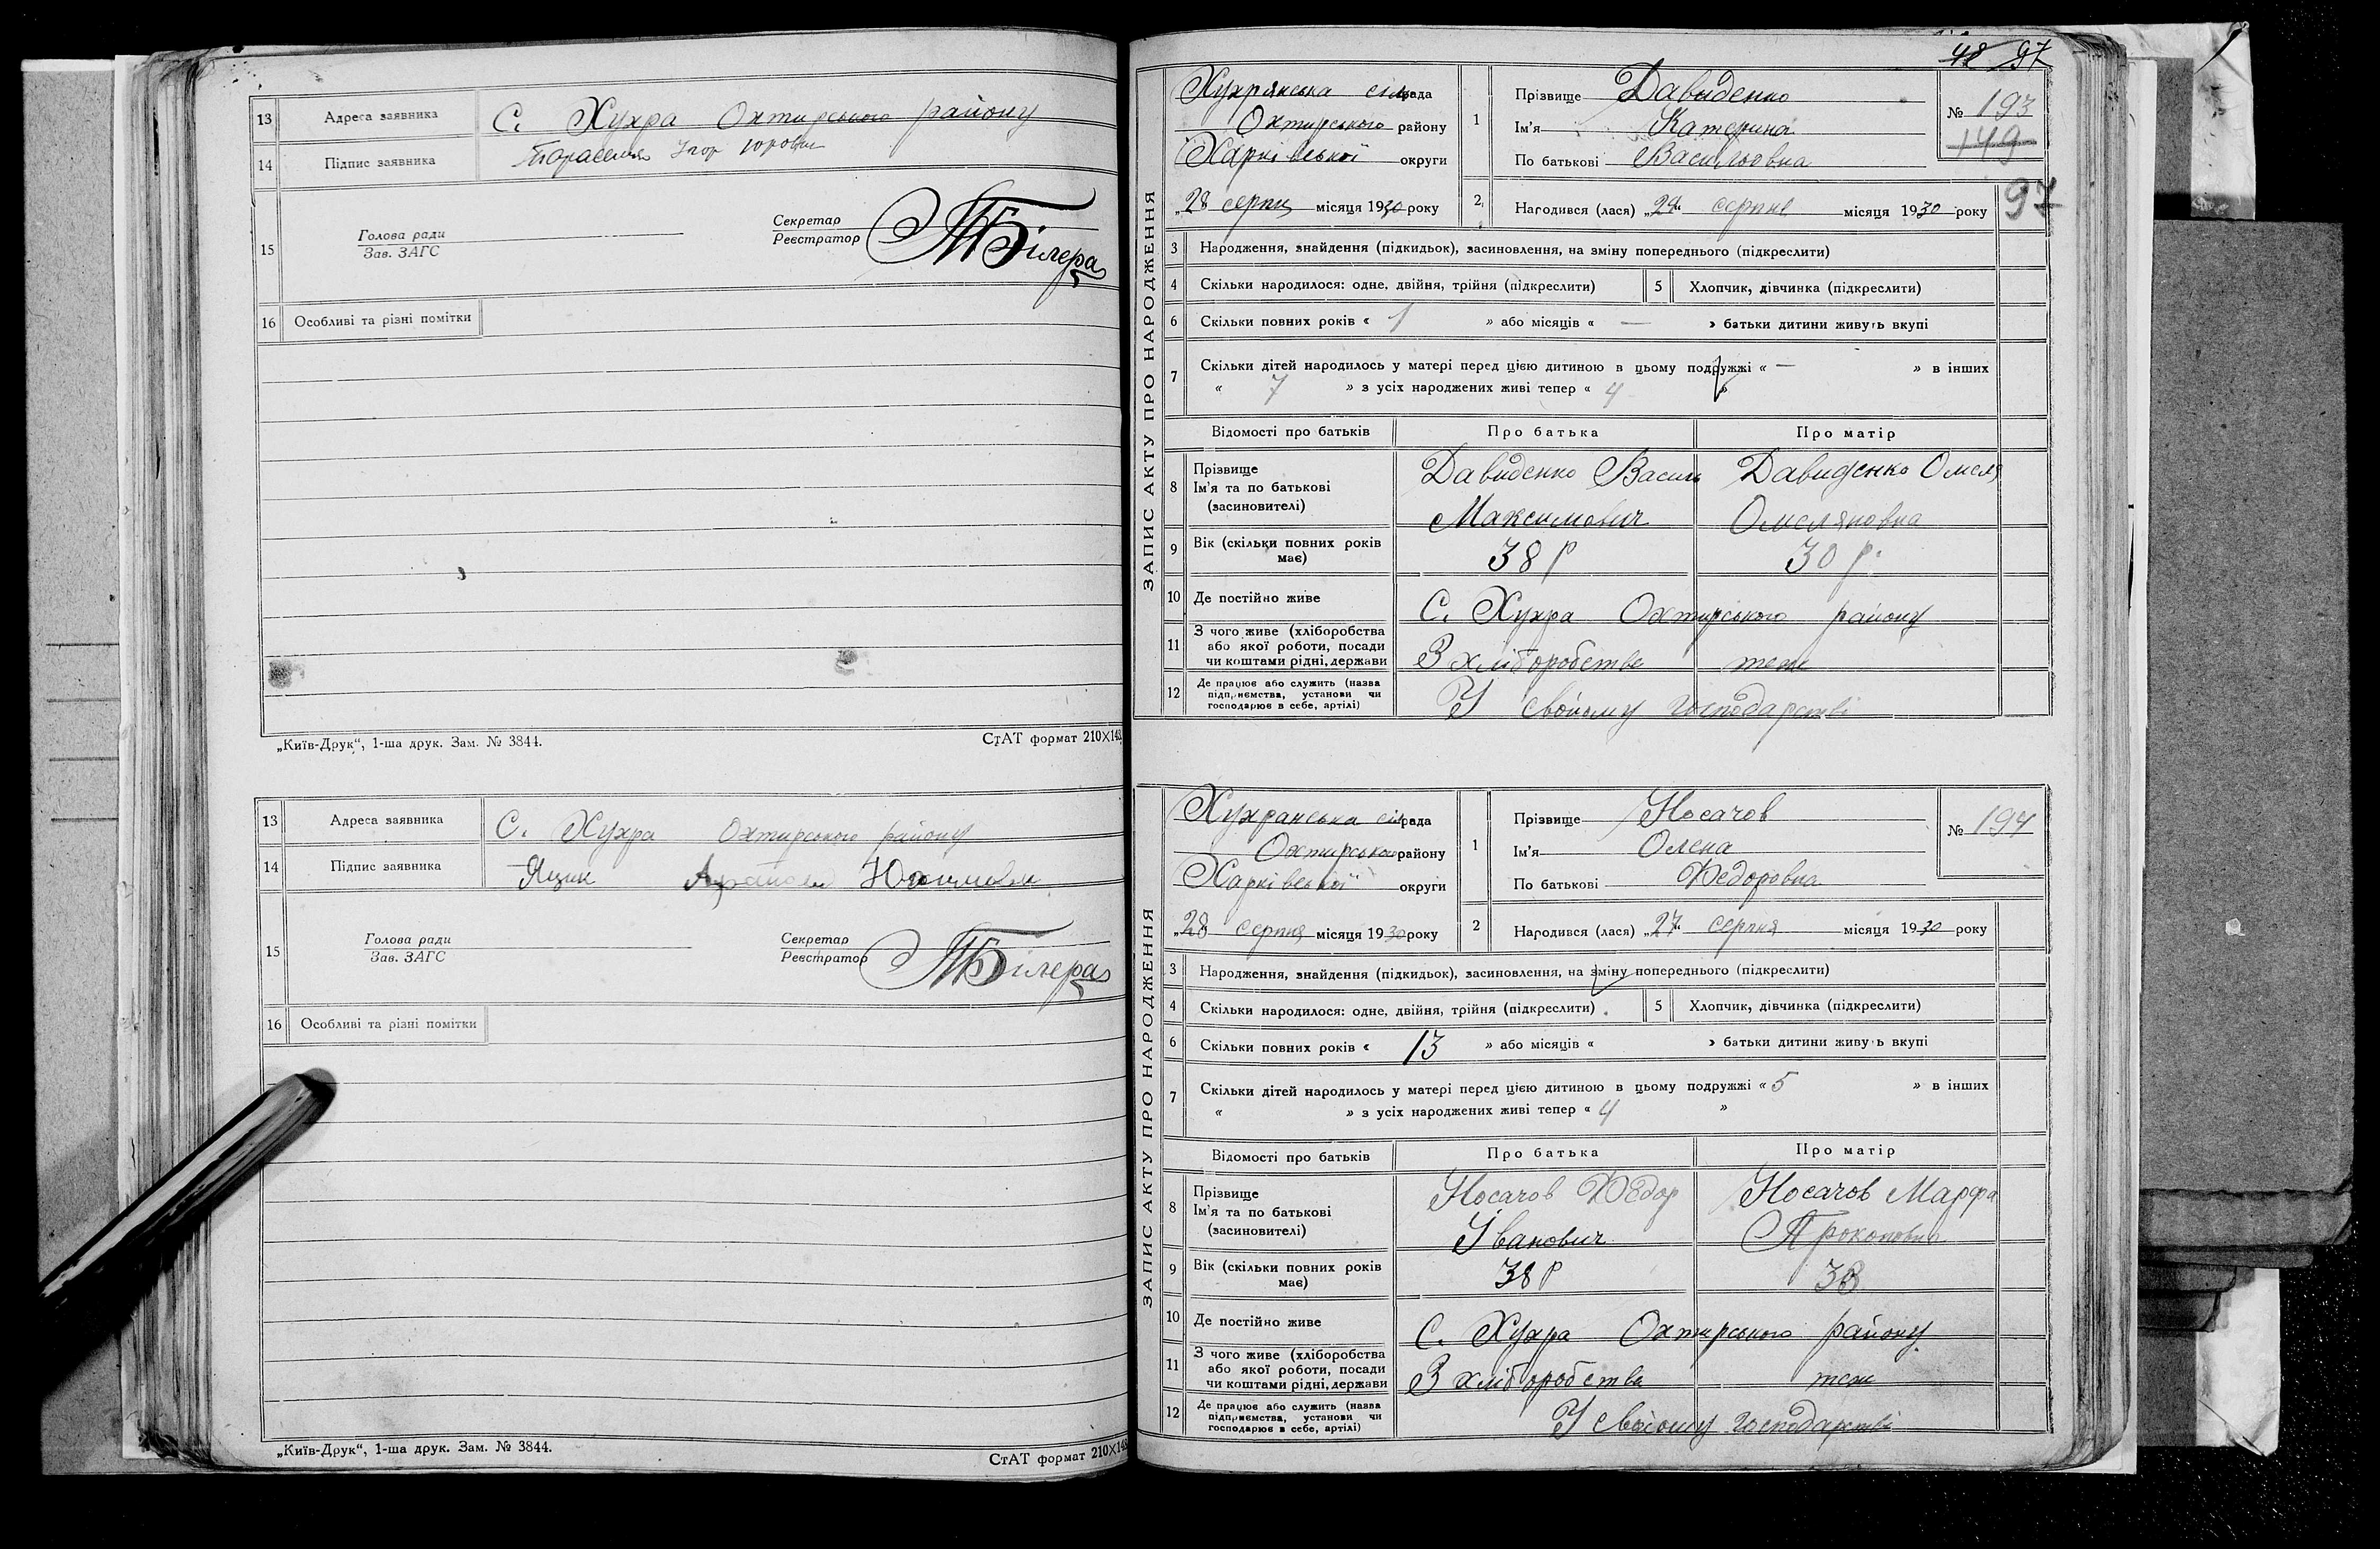 13 Адреса заявника С. Хухра Охтирського району
14 Підпис заявника
15 Голова ради
Зав. ЗАГС
Секретар
Реєстратор ТБілера
16 Особливі та різні помітки
„Київ-Друк“, 1-ша друк. Зам. № 3844. СтАТ формат 210×148
13 Адреса заявника С. Хухра Охтирського району
14 Підпис заявника Яцик
15 Голова ради
Зав. ЗАГС
Секретар
Реєстратор ТБілера
16 Особливі та різні помітки
„Київ-Друк“, 1-ша друк. Зам. № 3844. СтАТ формат 210×148
48 97
ЗАПИС АКТУ ПРО НАРОДЖЕННЯ
Хухрянська сільрада
Охтирського району
Харківської округи
„28 серпня місяця 1930 року
1 Прізвище Давиденко
Ім'я Катерина
По батькові Васильовна
№ 193
149
97
2 Народився (лася) „ серпня місяця 1930 року
3 Народження, знайдення (підкидьок), засиновлення, на зміну попереднього (підкреслити)
4 Скільки народилося: одне, двійня, трійня (підкреслити) 5 Хлопчик, дівчинка (підкреслити)
6 Скільки повних років « 1 » або місяців « — » батьки дитини живуть вкупі
7 Скільки дітей народилось у матері перед цією дитиною в цьому подружжі « — » в інших
« 7 » з усіх народжених живі тепер « 4 »
Відомості про батьків Про батька Про матір
8 Прізвище
Ім'я та по батькові
(засиновителі)
Давиденко Василь
Максимович
Давиденко
Омеляновна
9 Вік (скільки повних років має) 38 р 30 р.
10 Де постійно живе С. Хухра Охтирського району
11 З чого живе (хліборобства
або якої роботи, посади
чи коштами рідні, держави
З хліборобства теж
12 Де працює або служить (назва
підприємства, установи чи
господарює в себе, артілі)
У свойому господарстві
ЗАПИС АКТУ ПРО НАРОДЖЕННЯ
Хухранська сільрада
Охтирського району
Харківської округи
„28 серпня місяця 1930 року
1 Прізвище Носачов
Ім'я Олена
По батькові Федоровна
№ 194
2 Народився (лася) „27“ серпня місяця 1930 року
3 Народження, знайдення (підкидьок), засиновлення, на зміну попереднього (підкреслити)
4 Скільки народилося: одне, двійня, трійня (підкреслити) 5 Хлопчик, дівчинка (підкреслити)
6 Скільки повних років « 13 » або місяців « » батьки дитини живуть вкупі
7 Скільки дітей народилось у матері перед цією дитиною в цьому подружжі « 5 » в інших
« » з усіх народжених живі тепер « 4 »
Відомості про батьків Про батька Про матір
8 Прізвище
Ім'я та по батькові
(засиновителі)
Носачов Федор
Іванович
Носачов Марфа
Прокоповна
9 Вік (скільки повних років має) 38 р 38
10 Де постійно живе С. Хухра Охтирського району
11 З чого живе (хліборобства
або якої роботи, посади
чи коштами рідні, держави
З хліборобства теж
12 Де працює або служить (назва
підприємства, установи чи
господарює в себе, артілі)
У свойому господарстві